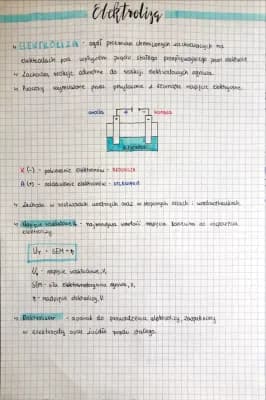 Elektroliza
ELEKTROLIZA - ciąg przemian chemicznych zachodzących na
elektrodach pod wpływem prądu stałego przepływającego przez elektrolit
Zachodzą reakcje odwrotne do reakcji elektrodowych ogniwa.
Procesy wymuszone przez przyłożone z zewnątrz napięcie elektryczne.
anoda katoda
elektrolit
K (-) - pobieranie elektronów - REDUKCJA
A (+) - oddawanie elektronów - UTLENIANIE
Zachodzi w roztworach wodnych oraz w stopionych solach i wodorotlenkach.
Napięcie rozkładowe, - najmniejsza wartość napięcia konieczna do rozpoczęcia
elektrolizy.
= SEM + η
- napięcie rozkładowe, V,
SEM - siła elektromotoryczna ogniwa, V,
η - nadnapięcie elektrolizy, V.
Elektrolizer - aparat do prowadzenia elektrolizy, zaopatrzony
w elektrody oraz źródło prądu stałego.